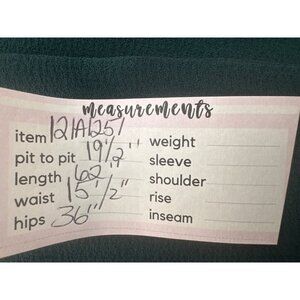 measurements
item 121A1251
pit to pit 19 1/2" weight
length 62" sleeve
waist 15 1/2" shoulder
hips 36" rise
inseam